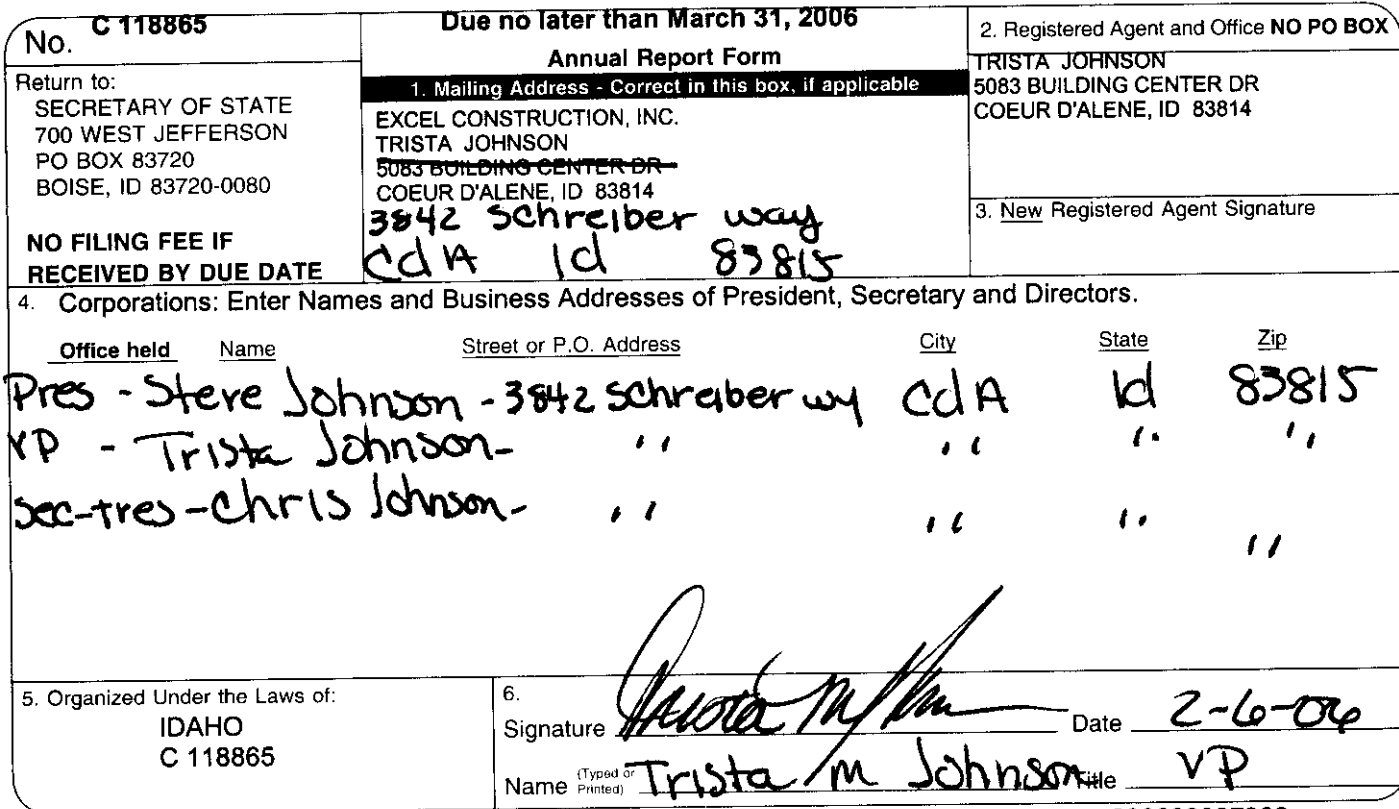 No. C 118865
Return to:
SECRETARY OF STATE
700 WEST JEFFERSON
PO BOX 83720
BOISE, ID 83720-0080
NO FILING FEE IF
RECEIVED BY DUE DATE
Due no later than March 31, 2006
Annual Report Form
1. Mailing Address - Correct in this box, if applicable
EXCEL CONSTRUCTION, INC.
TRISTA JOHNSON
5083 BUILDING CENTER DR
COEUR D'ALENE, ID 83814
3842 Schreiber way
CdA Id 83815
2. Registered Agent and Office NO PO BOX
TRISTA JOHNSON
5083 BUILDING CENTER DR
COEUR D'ALENE, ID 83814
3. New Registered Agent Signature
4. Corporations: Enter Names and Business Addresses of President, Secretary and Directors.
Office held Name Street or P.O. Address City State Zip
Pres - Steve Johnson - 3842 Schreiber wy CdA Id 83815
VP - Trista Johnson - " " " "
Sec-tres - Chris Johnson - " " " "
5. Organized Under the Laws of:
IDAHO
C 118865
6.
Signature Date 2-6-06
Name (Typed or Printed) Trista M Johnson Title VP